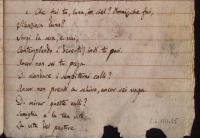 Che fai tu, luna, in ciel? Dimmi, che fai,
Silenziosa luna?
Sorgi la sera, e vai,
Contemplando i deserti; indi ti posi.
Ancor non sei tu paga
Di riandare i sempiterni calli?
Ancor non prendi a schivo, ancor sei vaga
Di mirar queste valli?
Somiglia a la tua vita
La vita del pastore.